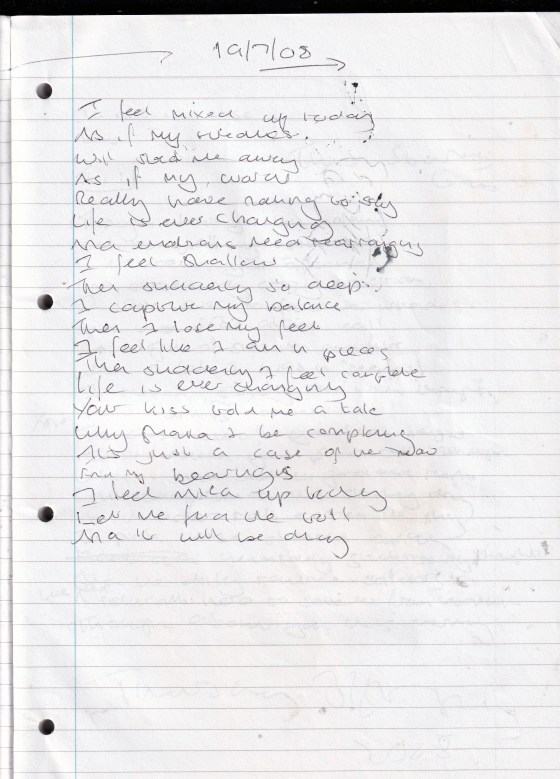 19/7/08
I feel mixed up today
As if my
will me away
As if my words
Really have nothing to say
Life is ever changing
And emotions need rearranging
I feel shallow
Then suddenly so deep
I capture my balance
Then I lose my feet
I feel like I am in pieces
Then suddenly I feel complete
Life is ever changing
Your kiss told me a tale
Why should I be complaining
It's just a case of
my bearings
I feel mixed up today
Let me find the
And it will be okay